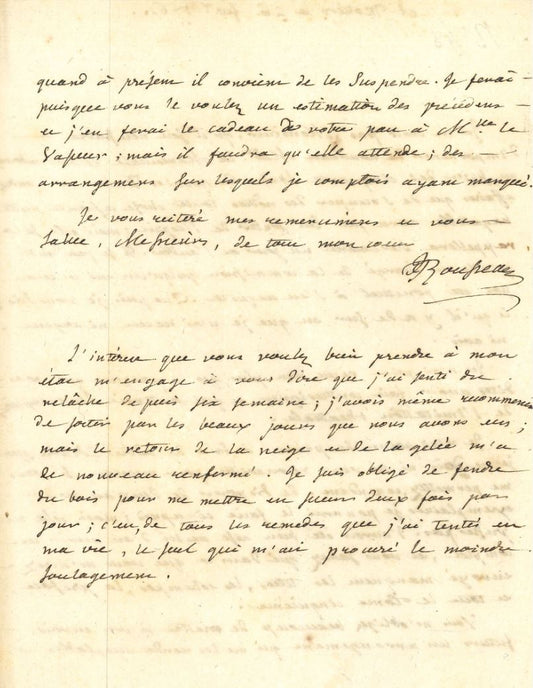 quand à présent il convient de les suspendre. Je ferai
puisque vous le voulez un estimation des précédens
et j'en ferai le cadeau de votre part à Mlle le
Vasseur ; mais il faudra qu'elle attende ; des
arrangemens sur lesquels je comptois ayant manqué.
Je vous reitére mes remercimens et vous
salue, Messieurs, de tout mon coeur
JJRousseau
L'intérest que vous voulez bien prendre à mon
état m'engage à vous dire que j'ai senti du
relâche depuis six semaine ; j'avois même recommencé
de sortir par les beaux jours que nous avons eus ;
mais le retour de la neige et de la gelée m'a
de nouveau renfermé. Je suis obligé de fendre
du bois pour me mettre en sueur deux fois par
jour ; c'est, de tous les remedes que j'ai tentés en
ma vie, le seul qui m'ait procuré le moindre
soulagement.